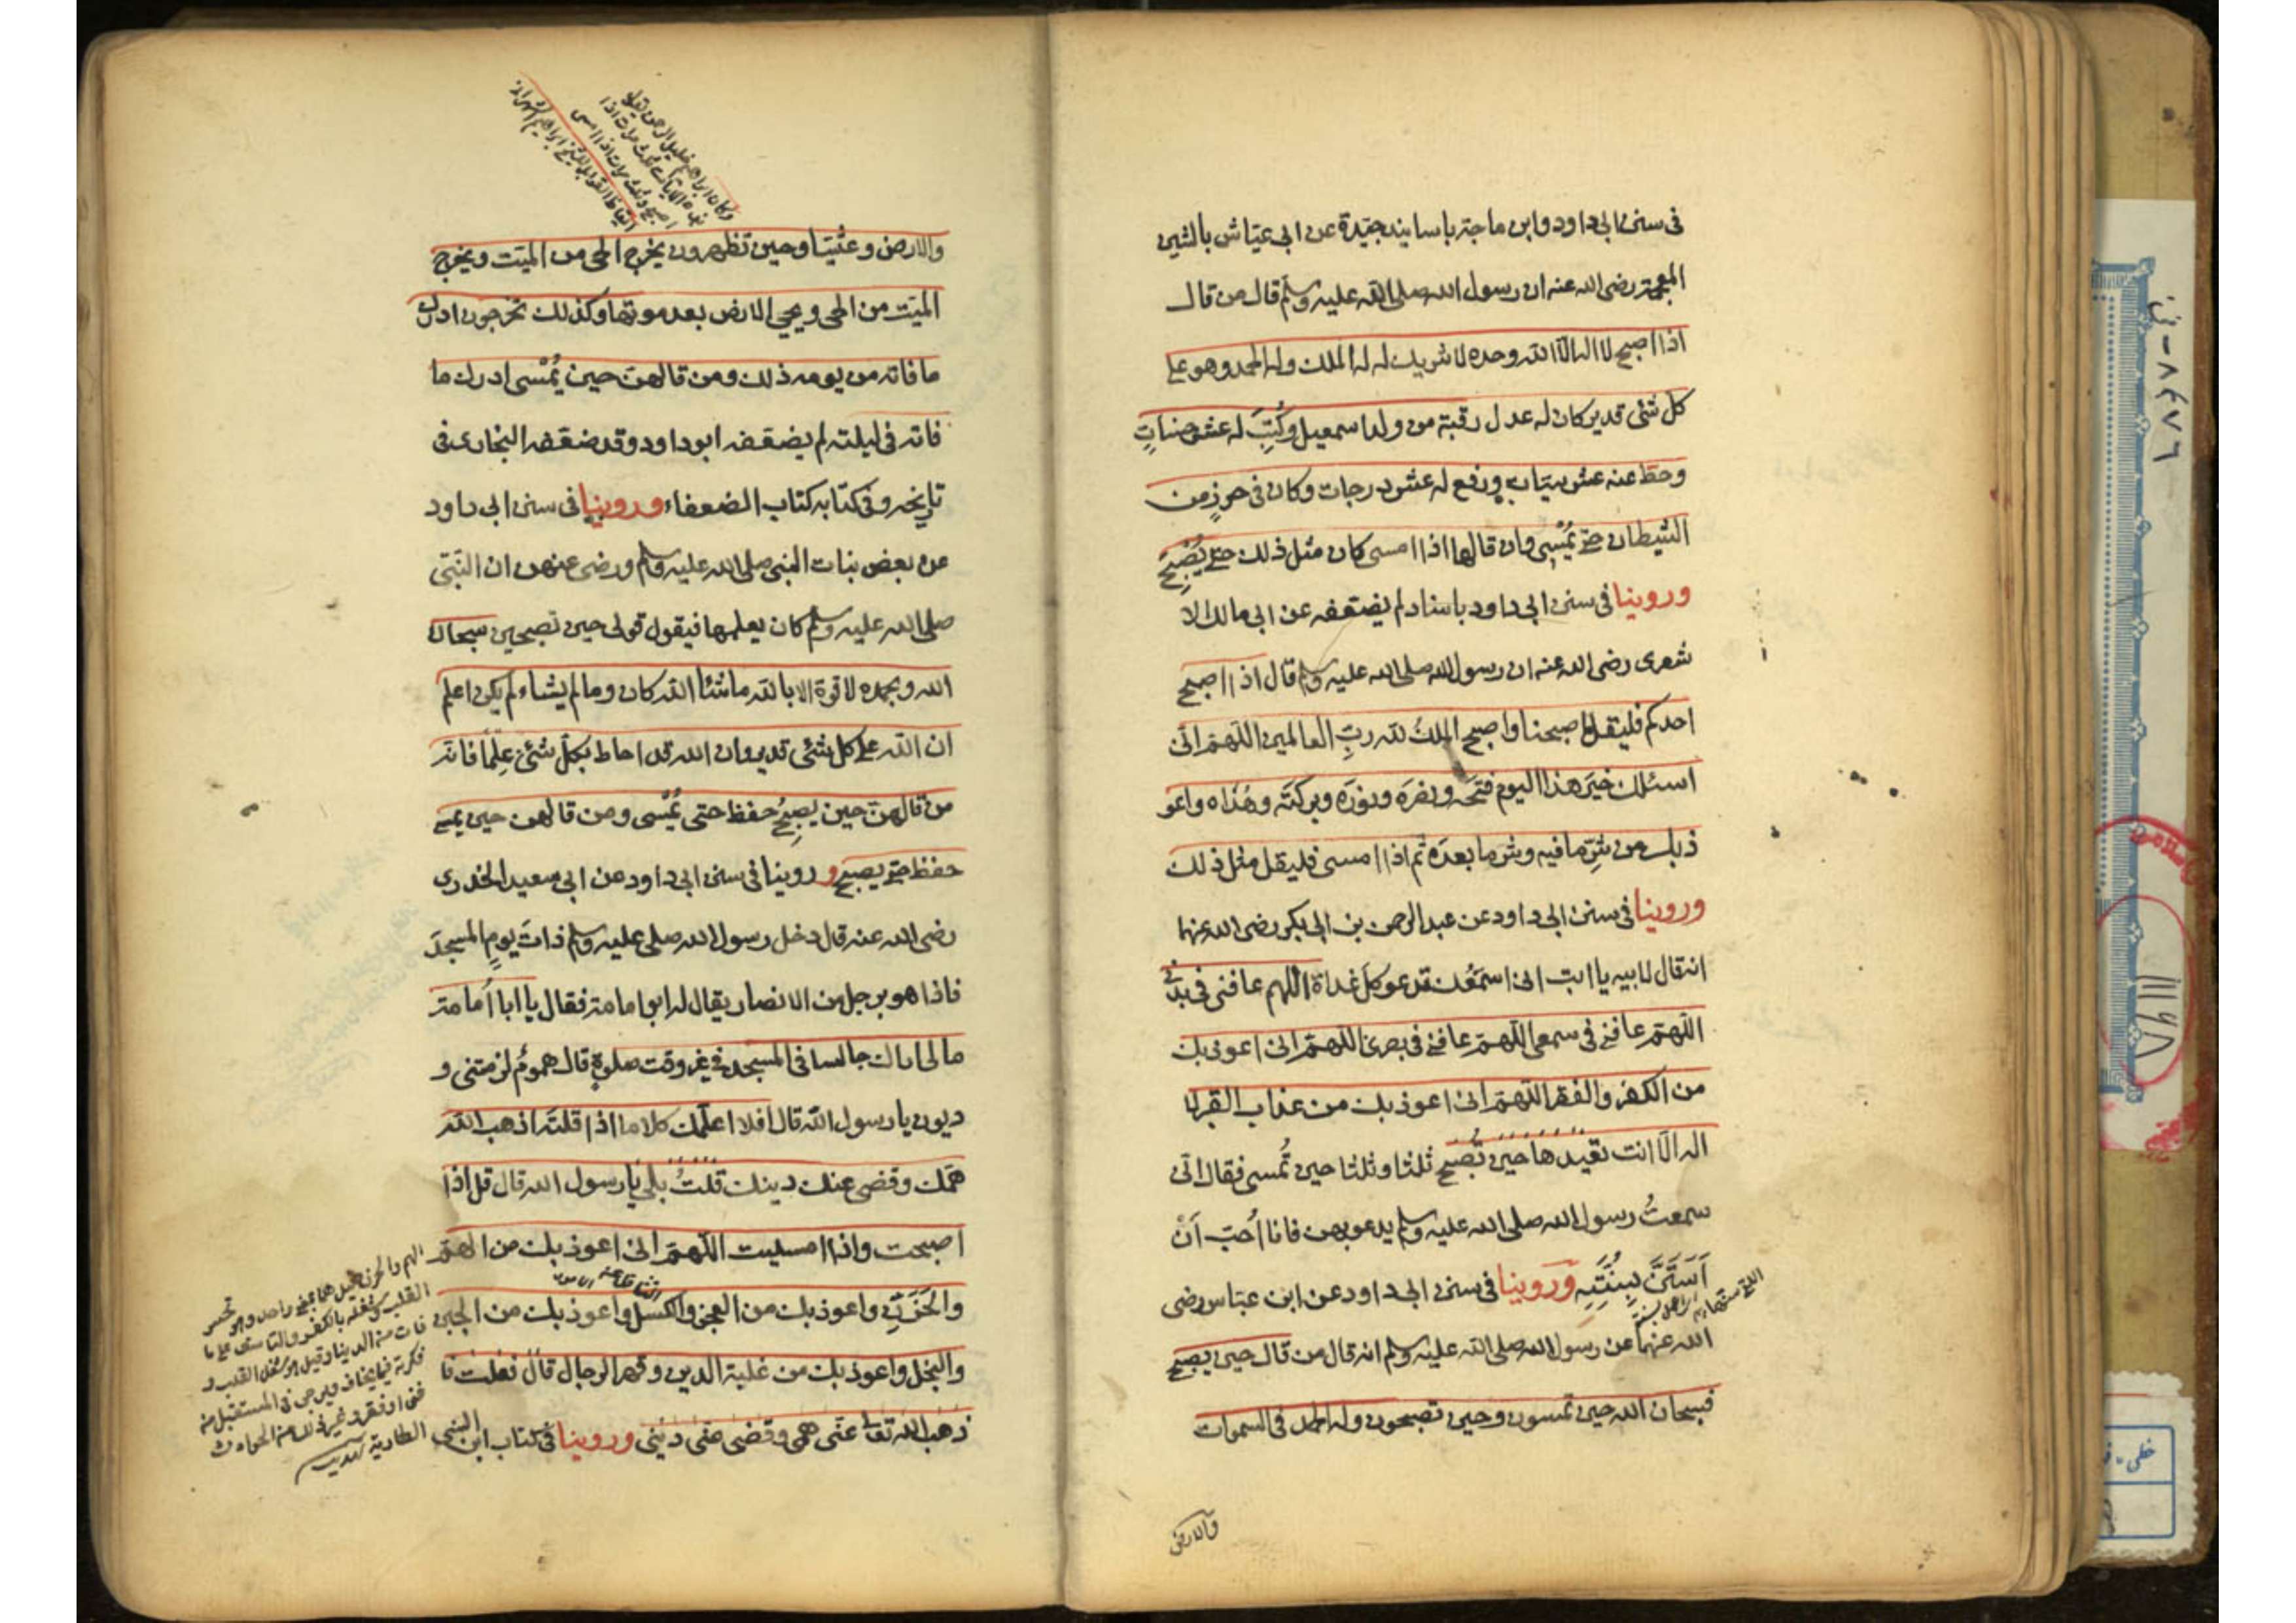 في سنن ابى داود وابن ماجة باسانيد جيّدة عن ابى عيّاش بالشين
المعجمة رضى الله عنه ان رسول الله صلى الله عليه وسلم قال من قال
اذا اصبح لا اله الّا الله وحده لا شريك له له الملك وله الحمد وهو على
كل شئ قدير كان له عدل رقبة من ولد اسمعيل وكُتِبَ له عشر حسناتٍ
وحطّ عنه عشر سيّاتٍ ورفع له عشر درجات وكان في حرزٍ من
الشيطان حتى يُمْسِى وان قالها اذا امسى كان مثل ذلك حتى يُصْبِحَ
وروينا في سنن ابى داود باسناد لم يضعّفه عن ابى مالك الا
شعرى رضى الله عنه ان رسول الله صلى الله عليه وسلم قال اذا اصبح
احدكم فليقل اصبحنا واصبح الملكُ لله ربِّ العالمين اللّهمّ انّى
اسئلك خيرَ هذا اليوم فتحَه ونصرَه ونورَه وبركتَه وهُداه واعو
ذ بك من شرِّ ما فيه وشر ما بعدَه ثم اذا امسى فليقل مثل ذلك
وروينا في سنن ابى داود عن عبد الرحمن بن ابى بكر رضى الله عنهما
انه قال لابيه يا ابت انى اسمعُك تدعو كلَ غداة اللهم عافنى في بدنى
اللّهمّ عافنى في سمعى اللّهمّ عافنى في بصرى اللّهمّ انى اعوذ بك
من الكفر والفقر اللّهمّ انى اعوذ بك من عذاب القبر لا
اله الّا انت تعيدها حين تُصبح ثلثا وثلثا حين تُمسى فقال انّى
سمعتُ رسول الله صلى الله عليه وسلم يدعو بهن فانا اُحبّ اَنْ
اَستَنَّ بِسُنَّتِه وروينا في سنن ابى داود عن ابن عبّاس رضى
الله عنهما عن رسول الله صلى الله عليه وسلم انه قال من قال حين يصبح
فسبحان الله حين تمسون وحين تصبحون وله الحمد في السموات
والارض
وكان ابراهيم خليل الرحمن يقول
هذه الآيات ثلث مرات اذا
اصبح وثلث مرات اذا امسى
والارض وعشيّا وحين تظهرون يخرج الحى من الميّت ويخرج
الميّت من الحى ويحيى الارض بعد موتها وكذلك تخرجون ادرك
ما فاته من يومه ذلك ومن قالهنّ حين يُمْسى ادرك ما
فاته في ليلته لم يضعّفه ابو داود وقد ضعّفه البخارى في
تاريخه وفي كتابه كتاب الضعفاء وروينا في سنن ابى داود
عن بعض بنات النبى صلى الله عليه وسلم ورضى عنهن ان النّبىّ
صلى الله عليه وسلم كان يعلمها فيقول قولى حين تصبحين سبحان
الله وبحمده لا قوة الا بالله ما شئا الله كان وما لم يشاء لم يكن اعلم
ان الله على كل شئى قدير وان الله قد احاط بكلّ شئىٍ عِلْمًا فانه
من قالهنّ حين يصبِحُ حفظ حتى يُمْسى ومن قالهن حين يمسى
حفظ حتى يصبح وروينا في سنن ابى داود عن ابى سعيد الخدرى
رضى الله عنه قال دخل رسول الله صلى عليه وسلم ذاتَ يومٍ المسجدَ
فاذا هو برجل من الانصار يقال له ابو امامة فقال يا ابا اُمامة
ما لى اراك جالسا في المسجد في غير وقت صلوةٍ قال همومٌ لزمتنى و
ديون يا رسول الله قال افلا اعلّمك كلاما اذا قلتَه اذهب الله
همّك وقضى عنك دينك قلتُ بلى يا رسول الله قال قل اذا
اصبحت واذا امسيت اللّهمّ انى اعوذ بك من الهمّ
والحَزَنِ واعوذ بك من العجز والكسل واعوذ بك من الجبن
والبخل واعوذ بك من غلبة الدين وقهر الرجال قال ففعلت فا
ذهب الله تعا عنّى همى وقضى عنّى دينى وروينا في كتاب ابن السنى
الهم والحزن قيل هما بمعنى واحد وهو